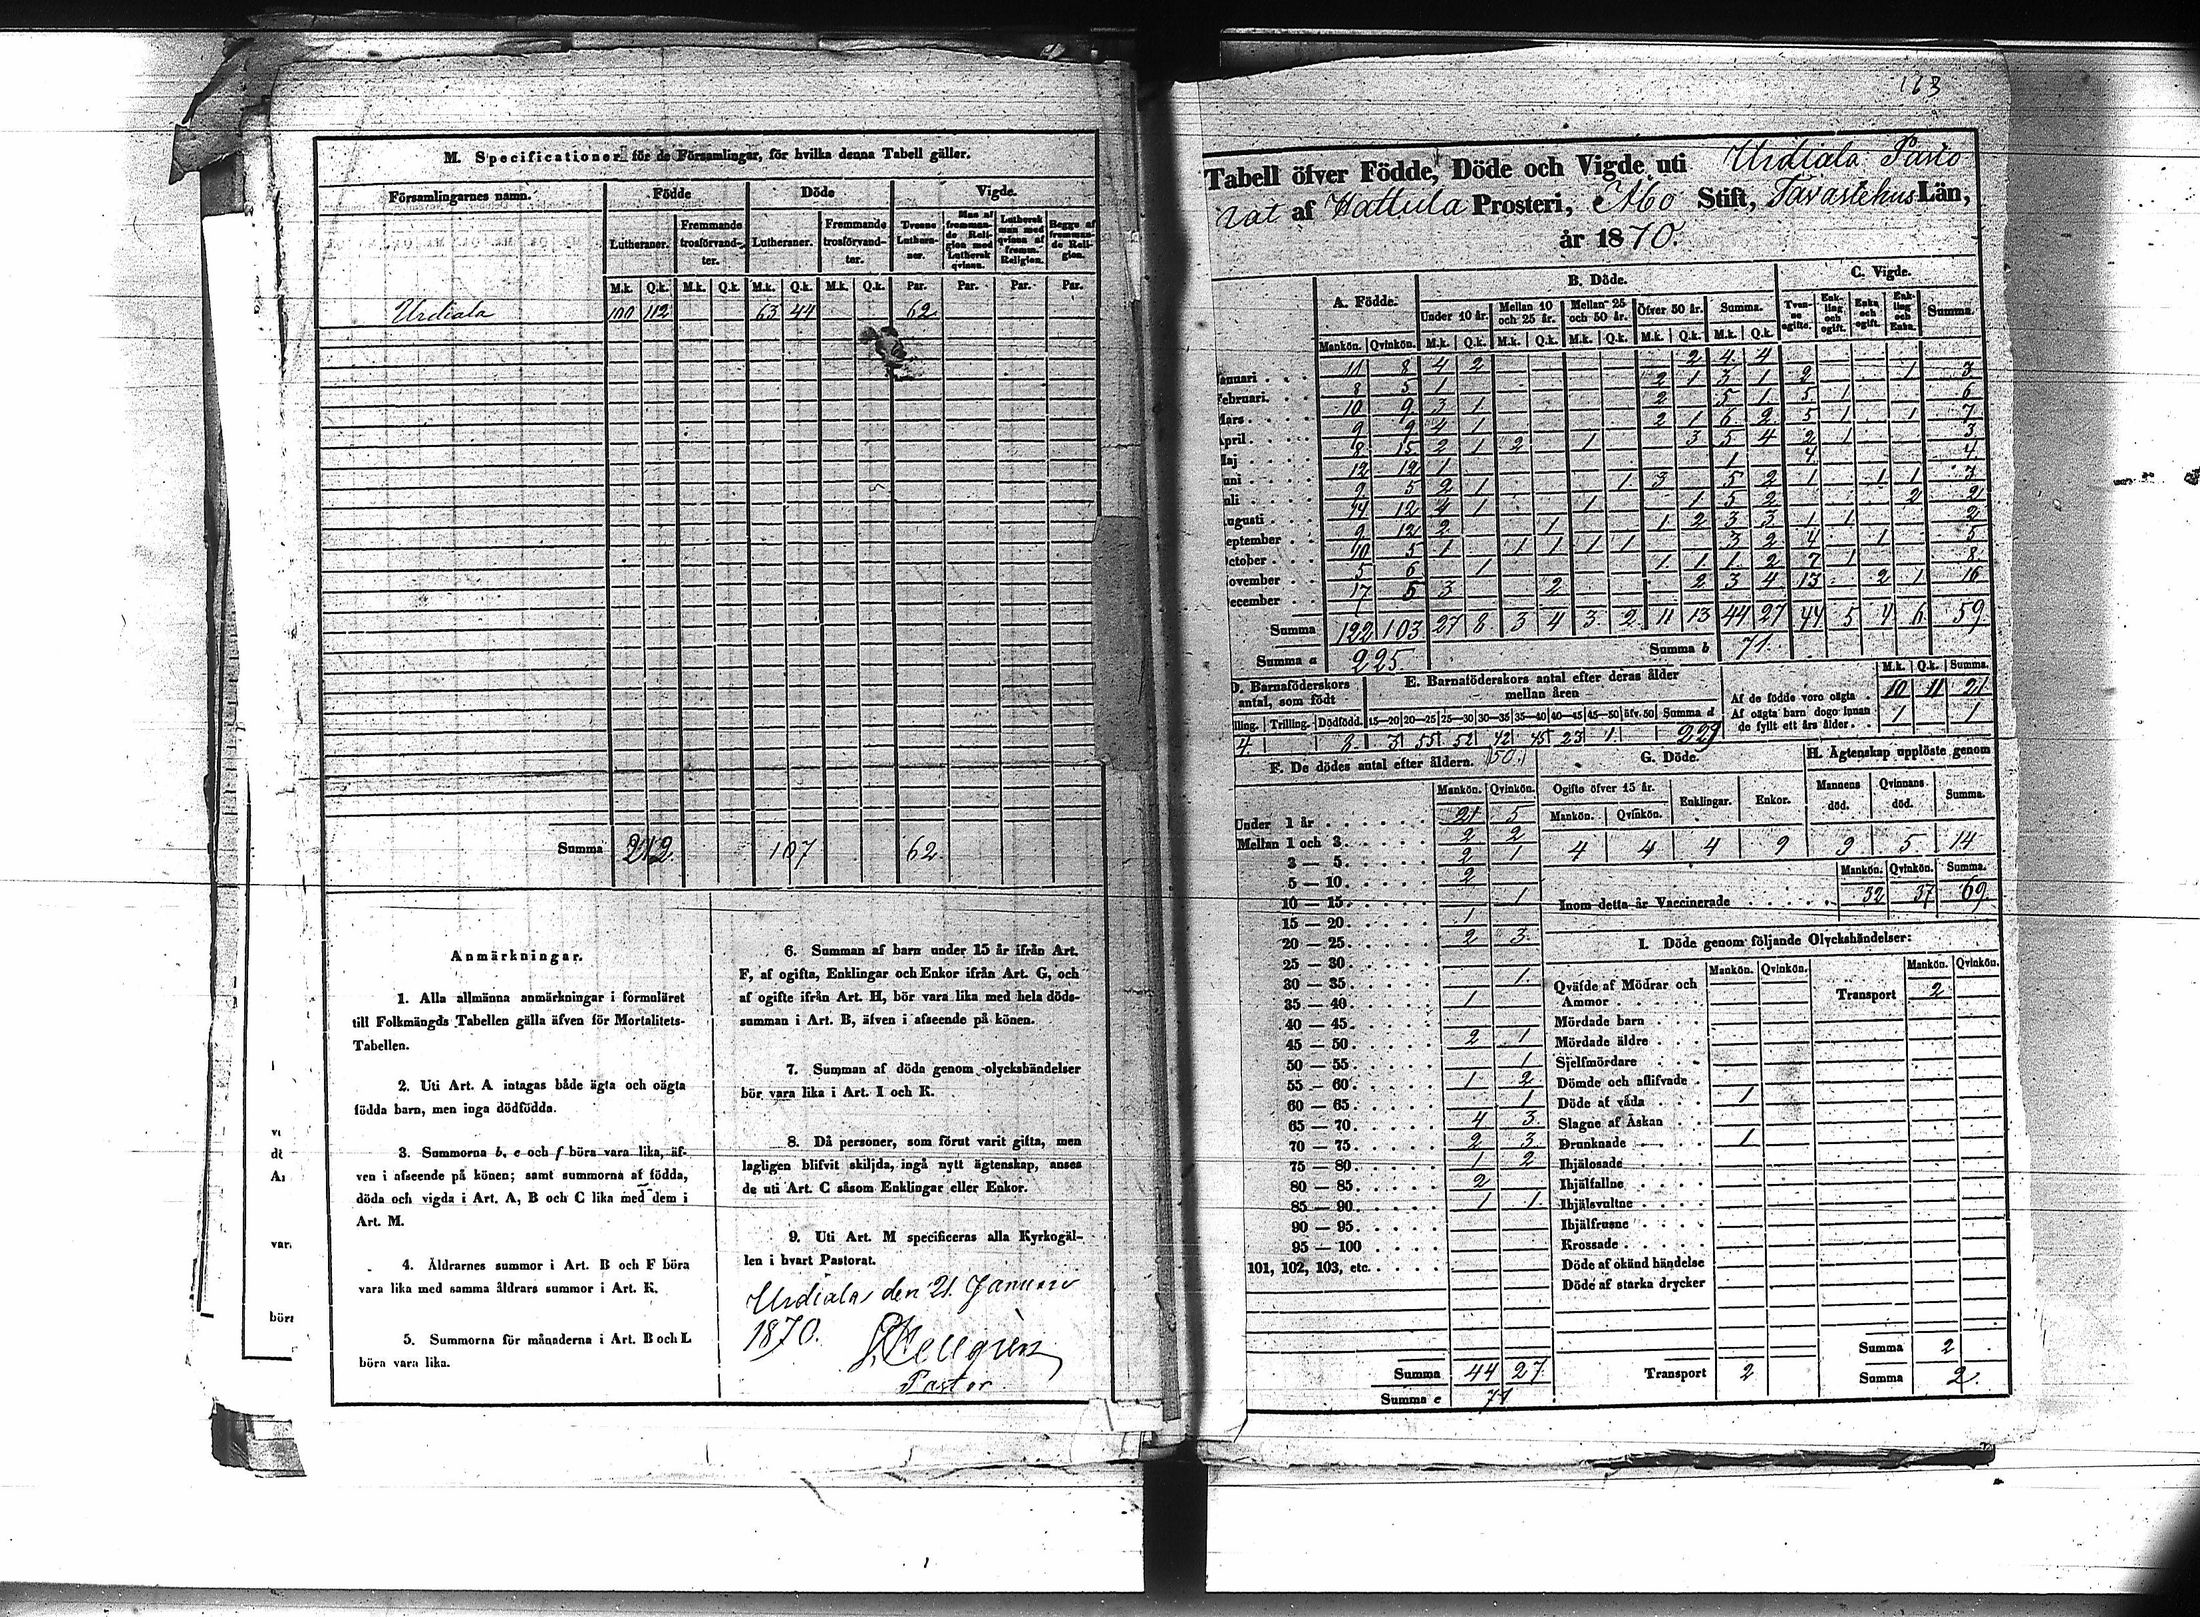 M. Specificationer för de Församlingar, för hvilka denna Tabell gäller.
Församlingarnes namn. Födde Döde Vigde.
Lutheraner. Fremmande trosförvandter. Lutheraner. Fremmande trosförvandter. Tvenne Lutheraner. Man af fremmande Religion med Luthersk qvinna. Luthersk man med qvinna af fremm. Religion. Begge af fremmande Religion.
M.k. Q.k. M.k. Q.k. M.k. Q.k. M.k. Q.k. Par. Par. Par. Par.
Urdiala 100 112 63 44 62
Summa 212 107 62
Anmärkningar.
1. Alla allmänna anmärkningar i formuläret
till Folkmängds Tabellen gälla äfven för Mortalitets-
Tabellen.
2. Uti Art. A intagas både ägta och oägta
födda barn, men inga dödfödda.
3. Summorna b, e och f böra vara lika, äf-
ven i afseende på könen; samt summorna af födda,
döda och vigda i Art. A, B och C lika med dem i
Art. M.
4. Åldrarnes summor i Art. B och F böra
vara lika med samma åldrars summor i Art. K.
5. Summorna för månaderna i Art. B och L
böra vara lika.
6. Summan af barn under 15 år ifrån Art.
F, af ogifta, Enklingar och Enkor ifrån Art. G, och
af ogifte ifrån Art. H, bör vara lika med hela döds-
summan i Art. B, äfven i afseende på könen.
7. Summan af döda genom olyckshändelser
bör vara lika i Art. I och K.
8. Då personer, som förut varit gifta, men
lagligen blifvit skiljda, ingå nytt ägtenskap, anses
de uti Art. C såsom Enklingar eller Enkor.
9. Uti Art. M specificeras alla Kyrkogäl-
len i hvart Pastorat.
Urdiala den 21 Januari
1870.
Pastor
163
Tabell öfver Födde, Döde och Vigde uti Urdiala Pasto
rat af Hattula Prosteri, Åbo Stift, Tavastehus Län,
år 1870.
A. Födde. B. Döde. C. Vigde.
Under 10 år. Mellan 10 och 25 år. Mellan 25 och 50 år. Öfver 50 år. Summa. Tvenne ogifte. Enkling och ogift. Enka och ogift. Enkling och Enka. Summa.
Mankön. Qvinkön. M.k. Q.k. M.k. Q.k. M.k. Q.k. M.k. Q.k. M.k. Q.k.
anuari 11 8 4 2 2 4 4
ebruari 8 5 1 2 1 3 1 2 1 3
ars 10 9 3 1 2 5 1 5 1 6
pril 9 9 4 1 2 1 6 2 5 1 1 7
aj 8 15 2 1 2 1 3 5 4 2 1 3
uni 12 12 1 1 4 4
uli 9 5 2 1 1 3 5 2 1 1 1 3
ugusti 14 12 4 1 1 1 5 2 2 2
eptember 9 12 2 1 1 2 3 3 1 1 2
ctober 10 5 1 1 1 1 1 3 2 4 1 5
ovember 5 6 1 1 1 1 2 7 1 8
ecember 17 5 3 2 2 3 4 13 2 1 16
Summa 122 103 27 8 3 4 3 2 11 13 44 27 44 5 4 6 59
Summa a 225. Summa b 71.
D. Barnaföderskors antal, som födt
E. Barnaföderskors antal efter deras ålder mellan åren
M.k. Q.k. Summa.
Af de födde voro oägta 10 11 21
Af oägta barn dogo innan de fyllt ett års ålder 1 1
lling. Trilling. Dödfödd. 15—20 20—25 25—30 30—35 35—40 40—45 45—50 öfv. 50 Summa d
4 8 3 55 52 42 45 23 1 229
F. De dödes antal efter åldern. G. Döde. H. Ägtenskap upplöste genom
Mankön. Qvinkön. Ogifte öfver 15 år. Enklingar. Enkor. Mannens död. Qvinnans död. Summa.
Mankön. Qvinkön.
4 4 4 9 9 5 14
Under 1 år 21 5
Mellan 1 och 3 2 2
3 — 5 2 1
5 — 10 2
10 — 15 1
15 — 20 1
20 — 25 2 3
25 — 30
30 — 35 1
35 — 40 1
40 — 45
45 — 50 2 1
50 — 55 1
55 — 60 1 2
60 — 65 1
65 — 70 4 3
70 — 75 2 3
75 — 80 1 2
80 — 85 2
85 — 90 1 1
90 — 95
95 — 100
101, 102, 103, etc.
Summa 44 27
Summa e 71
Mankön. Qvinkön. Summa.
Inom detta år Vaccinerade 32 37 69
I. Döde genom följande Olyckshändelser:
Mankön. Qvinkön. Mankön. Qvinkön.
Qväfde af Mödrar och Ammor Transport 2
Mördade barn
Mördade äldre
Sjelfmördare
Dömde och aflifvade
Döde af våda 1
Slagne af Åskan
Drunknade 1
Ihjälosade
Ihjälfallne
Ihjälsvultne
Ihjälfrusne
Krossade
Döde af okänd händelse
Döde af starka drycker
Summa 2
Transport 2 Summa 2.